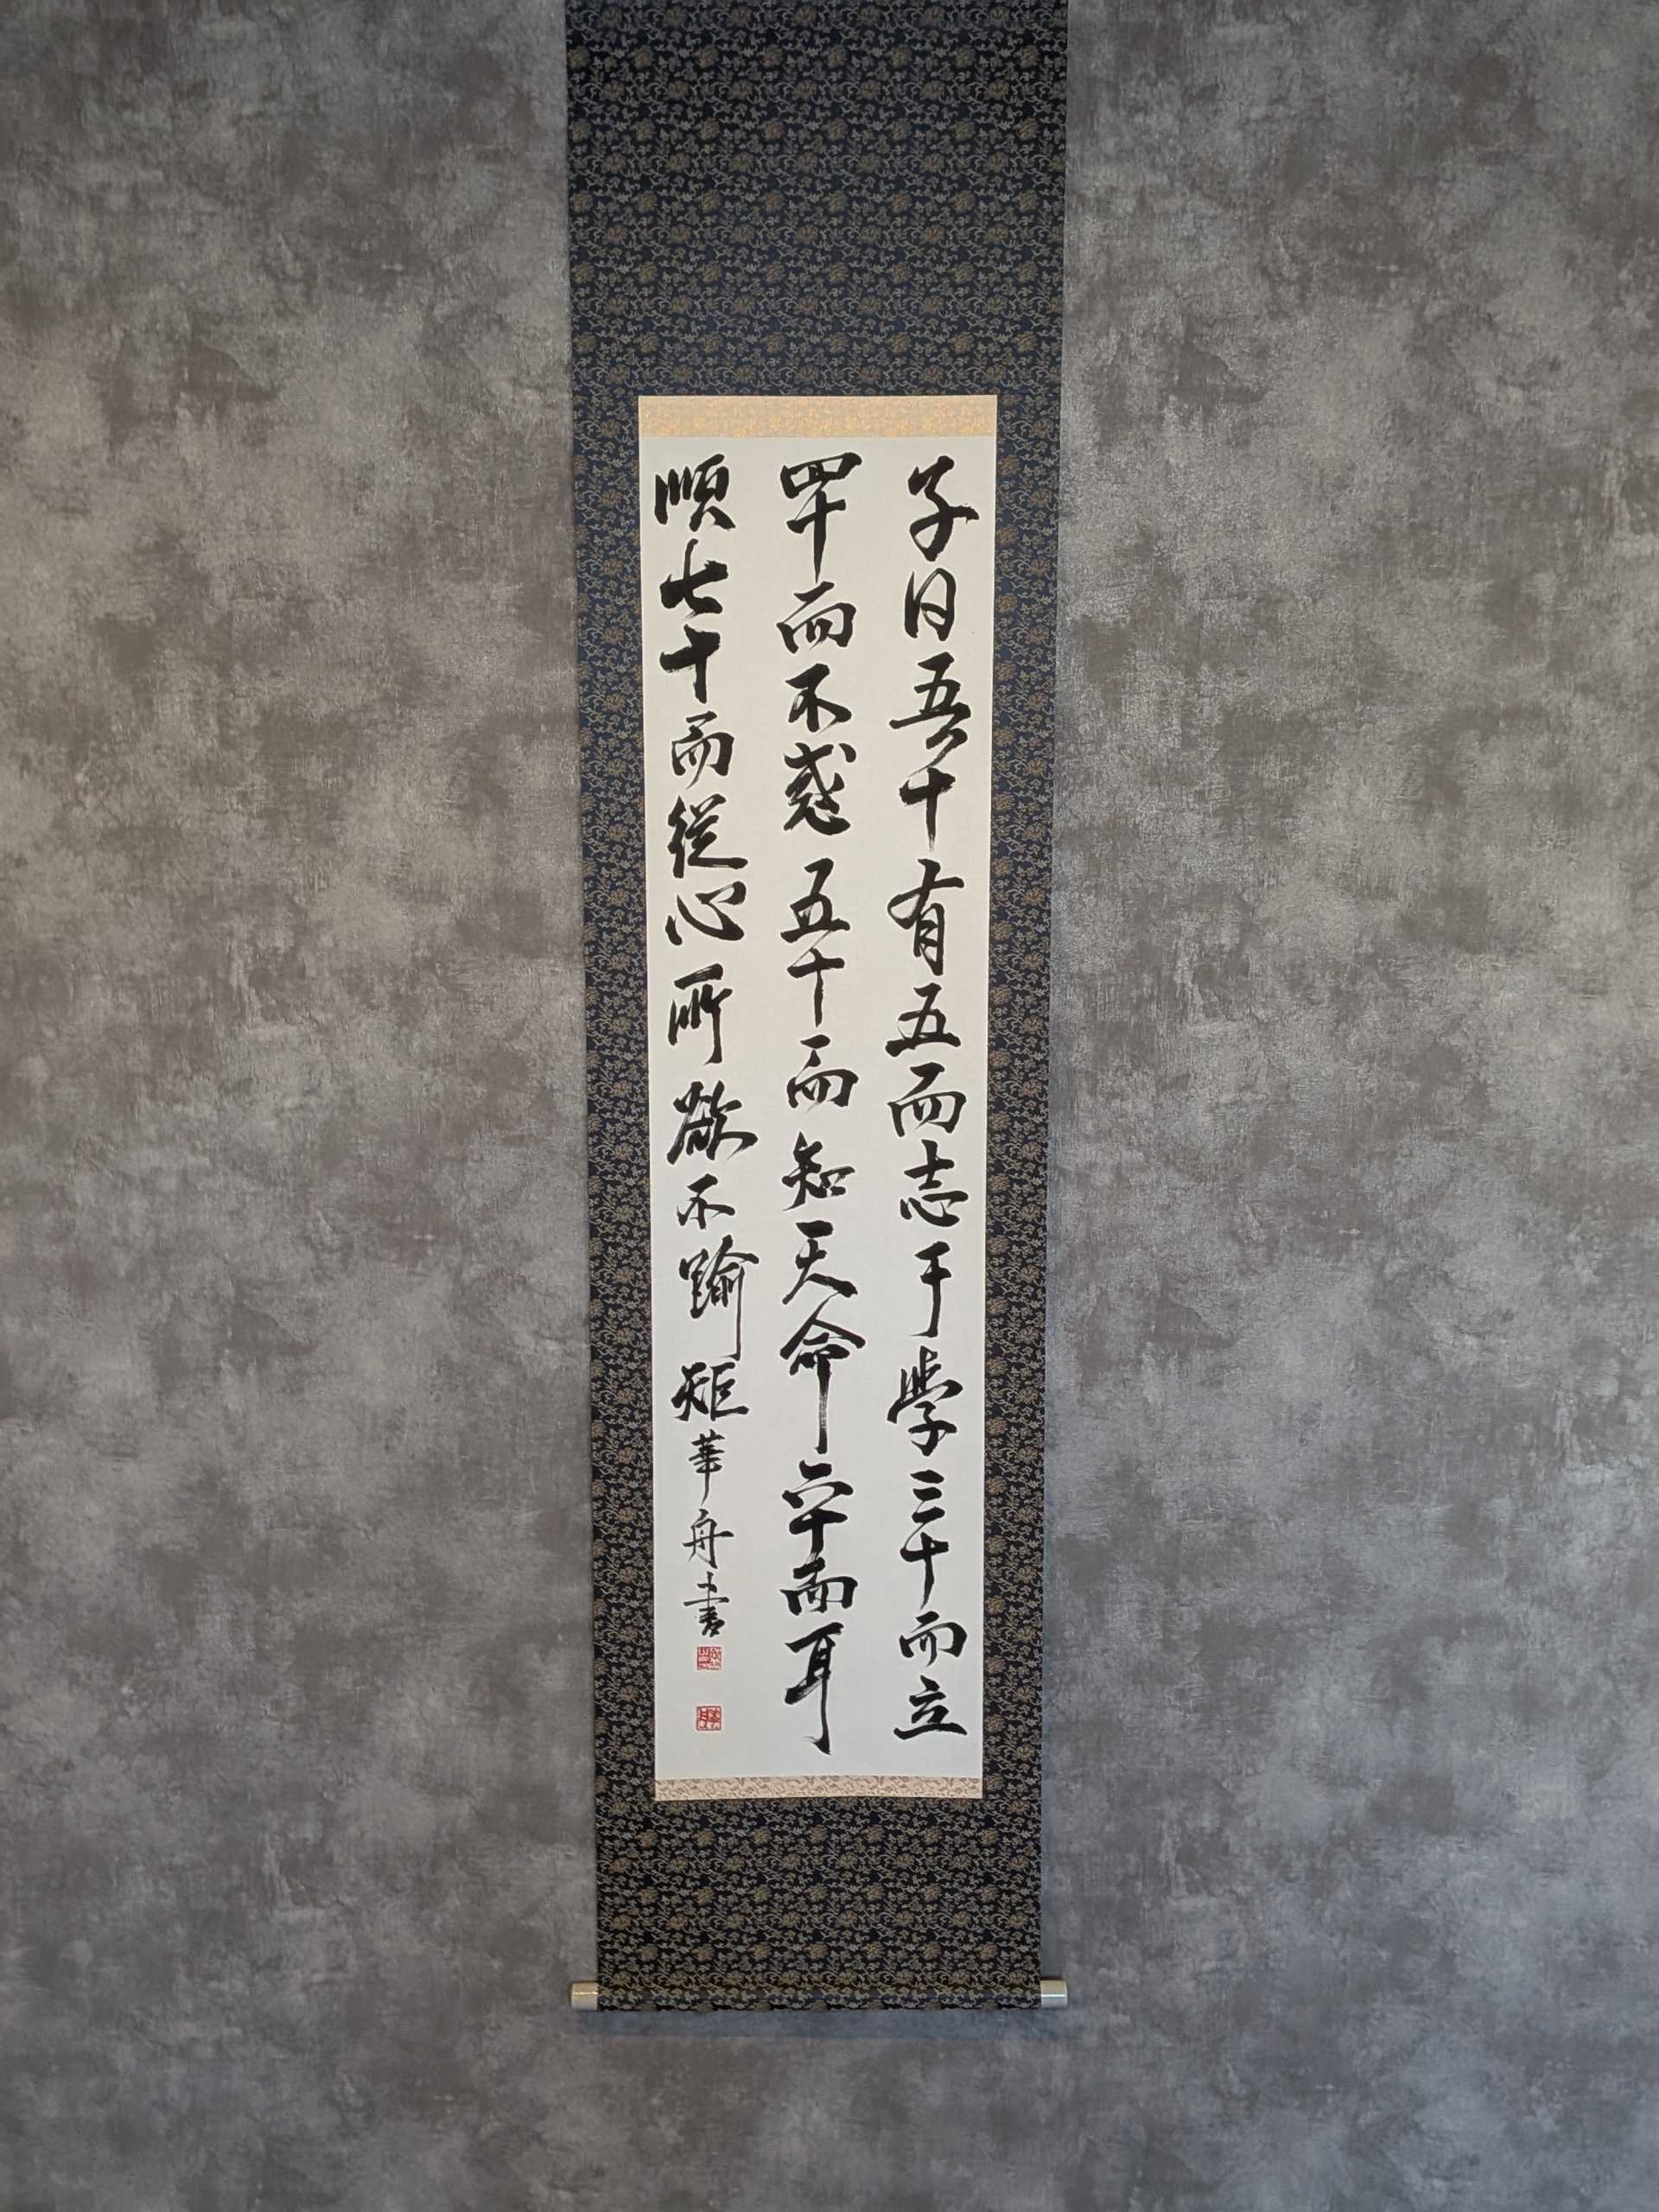 子曰吾十有五而志于學三十而立
四十而不惑五十而知天命六十而耳
順七十而從心所欲不踰矩
華舟書